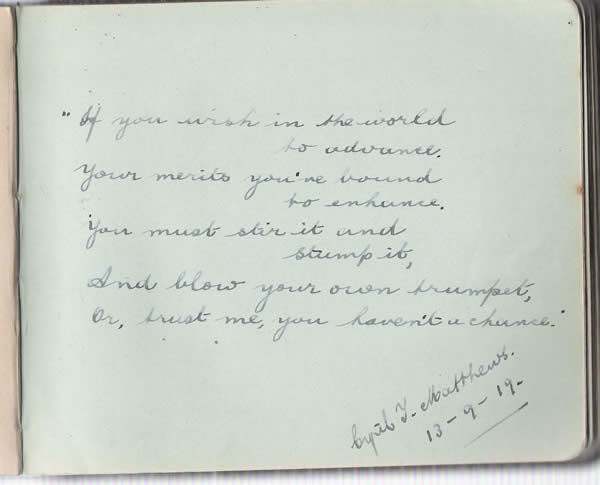 "If you wish in the world
to advance.
Your merits you've bound
to enhance.
You must stir it and
stump it,
And blow your own trumpet,
Or, trust me, you haven't a chance."
Cyril T. Matthews.
13-9-19-